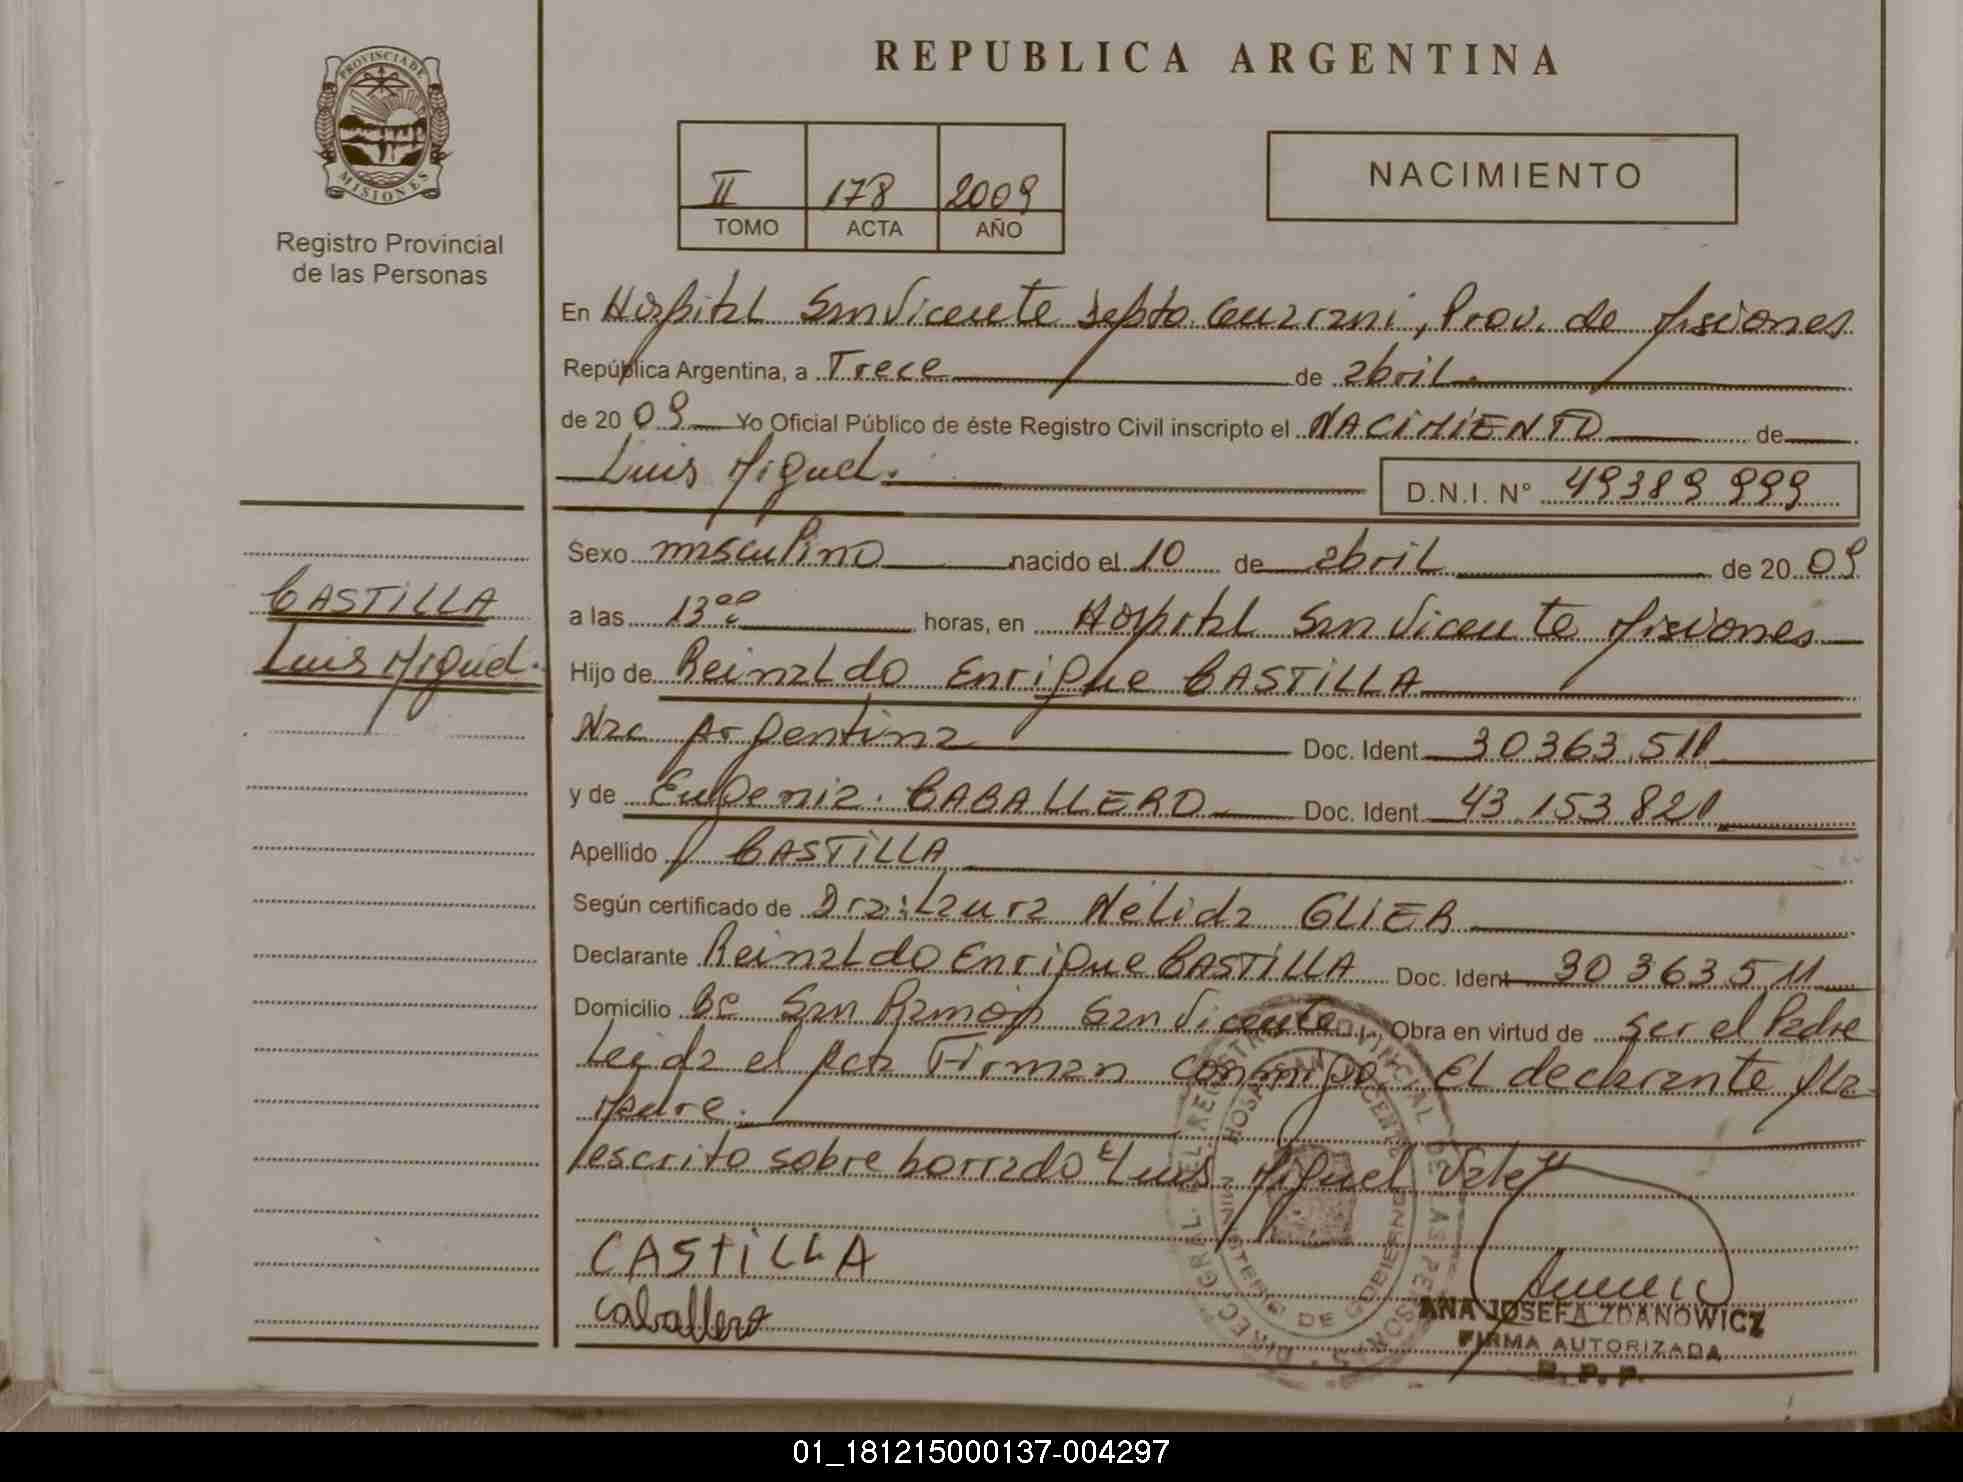 REPUBLICA ARGENTINA
PROVINCIA DE
MISIONES
Registro Provincial
de las Personas
II 178 2009
TOMO ACTA AÑO
NACIMIENTO
En Hospital San Vicente Depto. Guarani, Prov. de Misiones
República Argentina, a Trece de abril.
de 20 09 Yo Oficial Público de éste Registro Civil inscripto el NACIMIENTO de
Luis Miguel. D.N.I. N° 49389999
Sexo masculino nacido el 10 de abril de 20 09
CASTILLA
Luis Miguel.
a las 13 00 horas, en Hospital San Vicente Misiones
Hijo de Reinaldo Enrique CASTILLA
Nac Argentina Doc. Ident 30363.511
y de Eugenia. CABALLERO Doc. Ident 43.153.821
Apellido CASTILLA
Según certificado de Dra: Laura Nélida GLIER
Declarante Reinaldo Enrique CASTILLA Doc. Ident 30 363 511
Domicilio San Ramón San Vicente, Obra en virtud de ser el Padre
Leida el Acta Firman conmigo. El declarante y la
Madre.
escrito sobre borrado "Luis Miguel Vale"
CASTILLA
Caballero
DIREC. GRAL. DEL REGISTRO PROVINCIAL DE LAS PERSONAS
HOSP. SAN VICENTE
MINISTERIO DE GOBIERNO
ANA JOSEFA ZDANOWICZ
FIRMA AUTORIZADA
R. P. P.
01_181215000137-004297